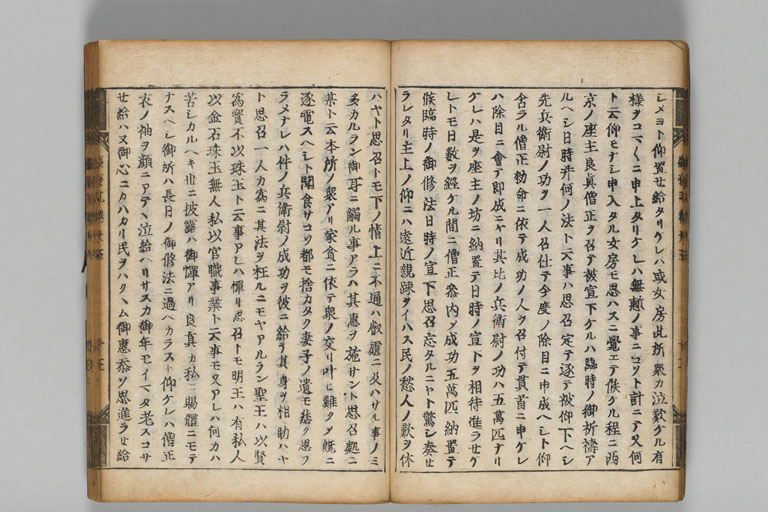 シメヨト仰置せ給タリケレハ或女房此所衆カ泣歎ケル有
様ヲコマ〱ニ申上タリケレハ無慙ノ事ニコソト計ニテ又何
ト云仰モナシ申入タル女房モ思ハスニ覺エテ候ケル程ニ西
京ノ座主良眞僧正ヲ召テ被宣下ケルハ臨時ノ御祈禱ア
ルヘシ日時并何ノ法ト云事ハ思召定テ逐テ被仰下ヘシ
先兵衛尉ノ功ヲ一人召仕テ今度ノ除目ニ申成ヘシト仰
含ラル僧正勅命ニ依テ成功ノ人ヲ召付テ貫首ニ申ケレ
ハ除目ニ會テ即成ニケリ其比ノ兵衛尉ノ功ハ五萬疋ナリ
ケレハ是ヲ座主ノ坊ニ納置テ日時ノ宣下ヲ相待進ラせケ
レトモ日數ヲ經ケル間ニ僧正参内メ成功五萬疋納置テ
候臨時ノ御修法日時ノ宣下思召忘タルニヤト驚シ奏せ
ラレタリ主上ノ仰ニハ遠近親踈ヲイハス民ノ愁人ノ歎ヲ休
ハヤト思召トモ下ノ情上ニ不通ハ叡慮ニ及ハサル事ノミ
多カルラン御耳ニ觸ル事アラハ其惠ヲ施サント思召處ニ
某ト云本所ノ衆アリ家貧ニ依テ衆ノ交リ叶ヒ難タメ既ニ
逐電スヘシト聞食サコソ都モ捨カタク妻子ノ遺モ悲ク思フ
ラメナレハ件ノ兵衛尉ノ成功ヲ彼ニ給テ其身ヲ相助ハヤ
ト思召一人カ為ニ其法ヲ枉ルニモヤアルラン聖王ハ以賢
為寳不以珠玉ト云事アレハ憚リ思召トモ明王ハ有私人
以金石珠玉無人私以官職事業ト云事モ又アレハ何カハ
苦シカルヘキ世ニ披露ハ御憚アリ良真カ私ニ賜體ニモテ
ナスヘシ御所ハ長日ノ御修法ニ過ヘカラスト仰ケレハ僧正
衣ノ袖ヲ顔ニアテヽ泣給ヘリサスカ御年モイマタ老スコサ
せ給ハヌ御心ニカハカリ民ヲハクヽム御惠忝ソ思進ラせ給